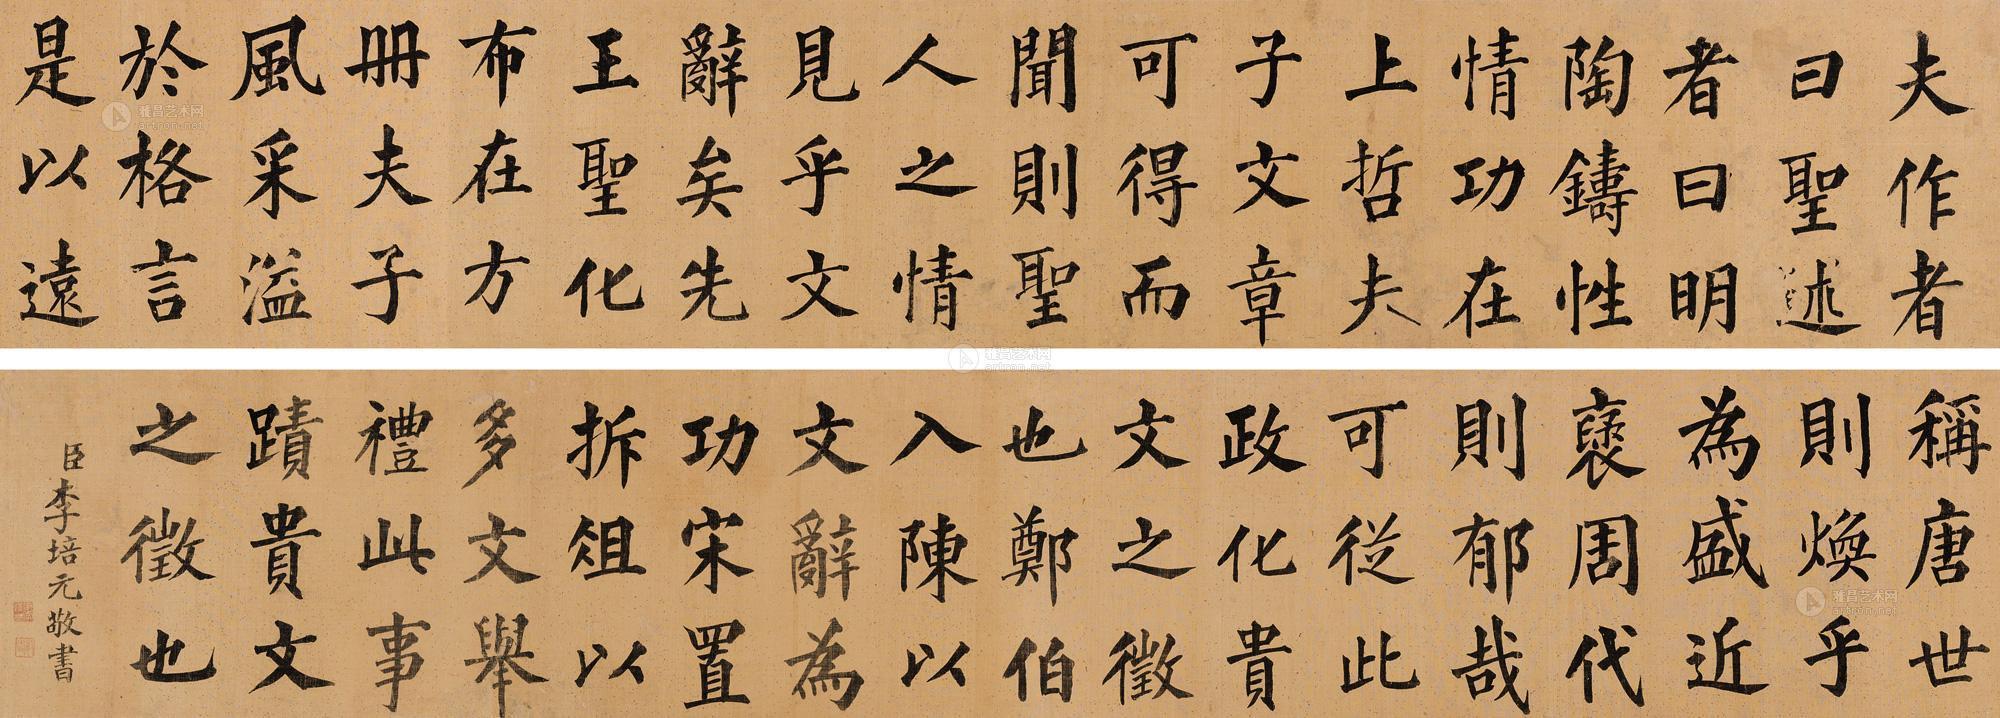 夫作者
曰聖述
者曰明
陶鑄性
情功在
上哲夫
子文章
可得而
聞則聖
人之情
見乎文
辭矣先
王聖化
布在方
冊夫子
風采溢
於格言
是以遠
稱唐世
則煥乎
為盛近
褒周代
則郁哉
可從此
政化貴
文之徵
也鄭伯
入陳以
文辭為
功宋置
折俎以
多文舉
禮此事
蹟貴文
之徵也
臣李培元敬書
雅昌艺术网
artron.net
雅昌艺术网
artron.net
雅昌艺术网
artron.net